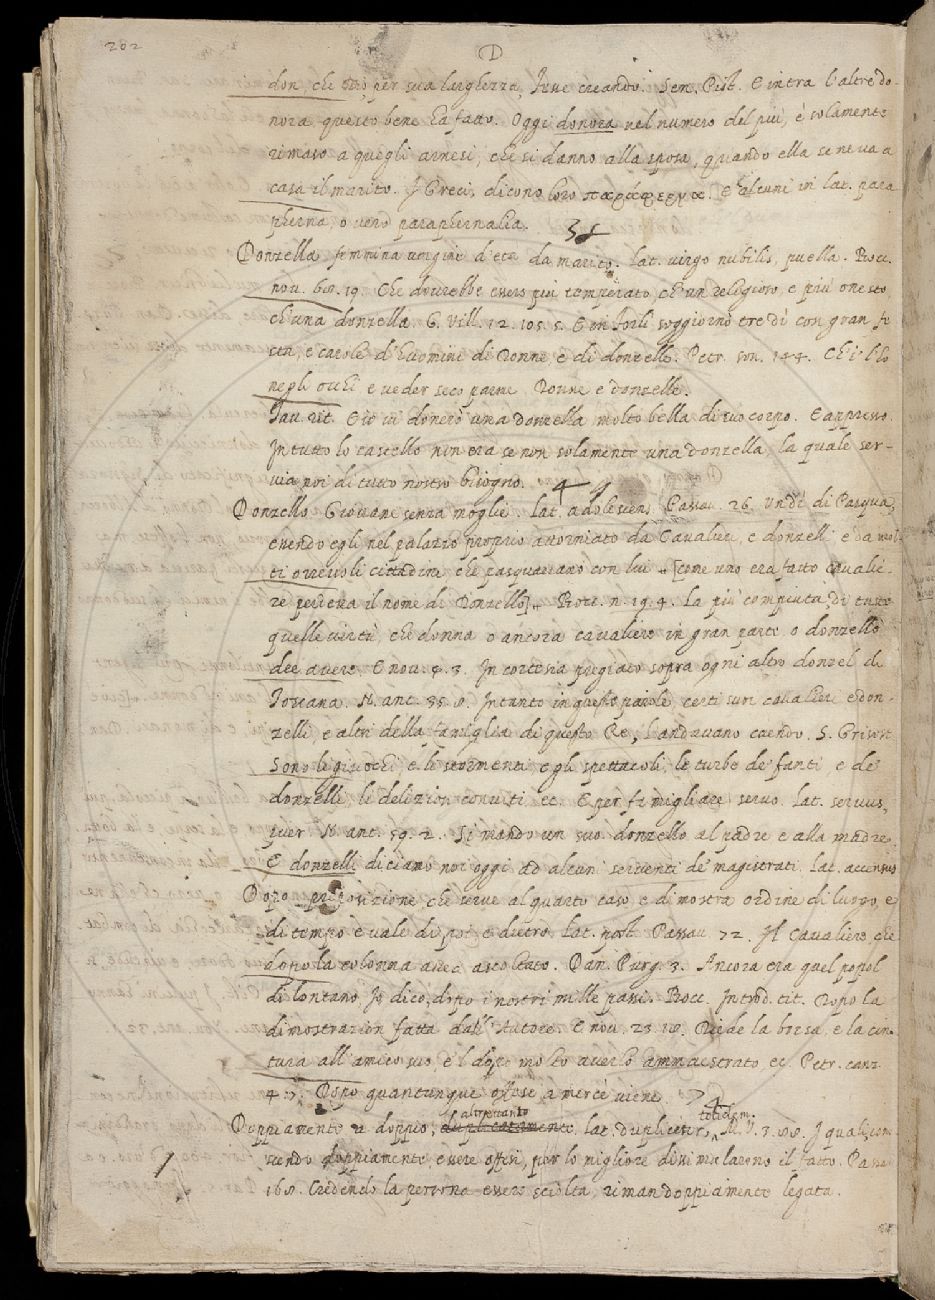 202
D
don, che Dio, per sua larghezza, Iure creando. Sen. Pist. E intra l'altre do-
nora questo bene ha fatto. Oggi donora nel numero del più, è solamente
rimaso a quegli arnesi, che si danno alla sposa, quando ella se ne va a
casa il marito. I Greci dicono loro παράφερνα. E alcuni in lat. para
pherna, o vero paraphernalia.
Donzella, femmina vergine d'età da marito. Lat. virgo nubilis, puella. Bocc.
nov. 60. 19. Che dovrebbe essere più temperato, ch'un religioso, e più onesto
ch'una donzella. G. Vill. 12. 105. 5. E in Forlì soggiornò tre dì con gran fe
sta, e carole d'huomini di donne, e di donzelle. Petr. son. 144. Ch'i l'ho
negli occhi e veder seco parme Donne e donzelle.
Tav. rit. E io vi donerò una donzella molto bella di suo corpo. E appresso.
In tutto lo castello non era se non solamente una donzella, la quale ser-
via noi di tutto nostro bisogno. 4
Donzello Giovane senza moglie. Lat. adolescens. Passav. 26. Un dì di Pasqua,
essendo egli nel palazzo proprio attorniato da Cavalieri, e donzelli e da mol
ti orrevoli cittadini, che pasquavano con lui [come uno era fatto Cavalie
re perdeva il nome di Donzello] Bocc. n. 19. 4. La più compiuta di tutte
quelle virtù, che donna o ancora cavaliere in gran parte o donzello
dee avere. E nov. 4. 3. In cortesia pregiato sopra ogni altro donzel di
Toscana. N. ant. 35. Intanto in queste parole, certi suoi cavalieri e don-
zelli, e altri della famiglia di questo Re, l'andavano caendo. S. Grisost.
Sono li giuochi, e li stormenti, e gli spettacoli, le turbe de' fanti e de'
donzelli, le delizion conviti ec. E per famigliare servo. Lat. servus,
puer N. ant. 59. 2. Si mandò un suo donzello al padre e alla madre
E donzelli diciamo noi oggi ad alcuni serventi de' magistrati. Lat. accensus
Dopo preposizione che serve al quarto caso, e dimostra ordine di luogo, e
di tempo e vale di poi e dietro. Lat. post. Passav. 72. Il Cavaliere, che
dopo la colonna avea ascoltato. Dan. Purg. 3. Ancora era quel popol
di lontano, Io dico, dopo i nostri mille passi. Bocc. Introd. tit. Dopo la
dimostrazion fatta dall'Autore. E nov. 23. Diede la borsa, e la cin-
tura all'amico suo, e dopo molto averlo ammaestrato, ec. Petr. canz.
4. Dopo quantunque offese a mercè viene.
altrettanto totidem
Doppiamente a doppio, duplicatamente, lat. dupliciter, M. V. 3. I quali con
scendo doppiamente essere offesi, per lo migliore dissimularono il fatto. Passa
168. Credendo la persona essere sciolta, riman doppiamente legata.